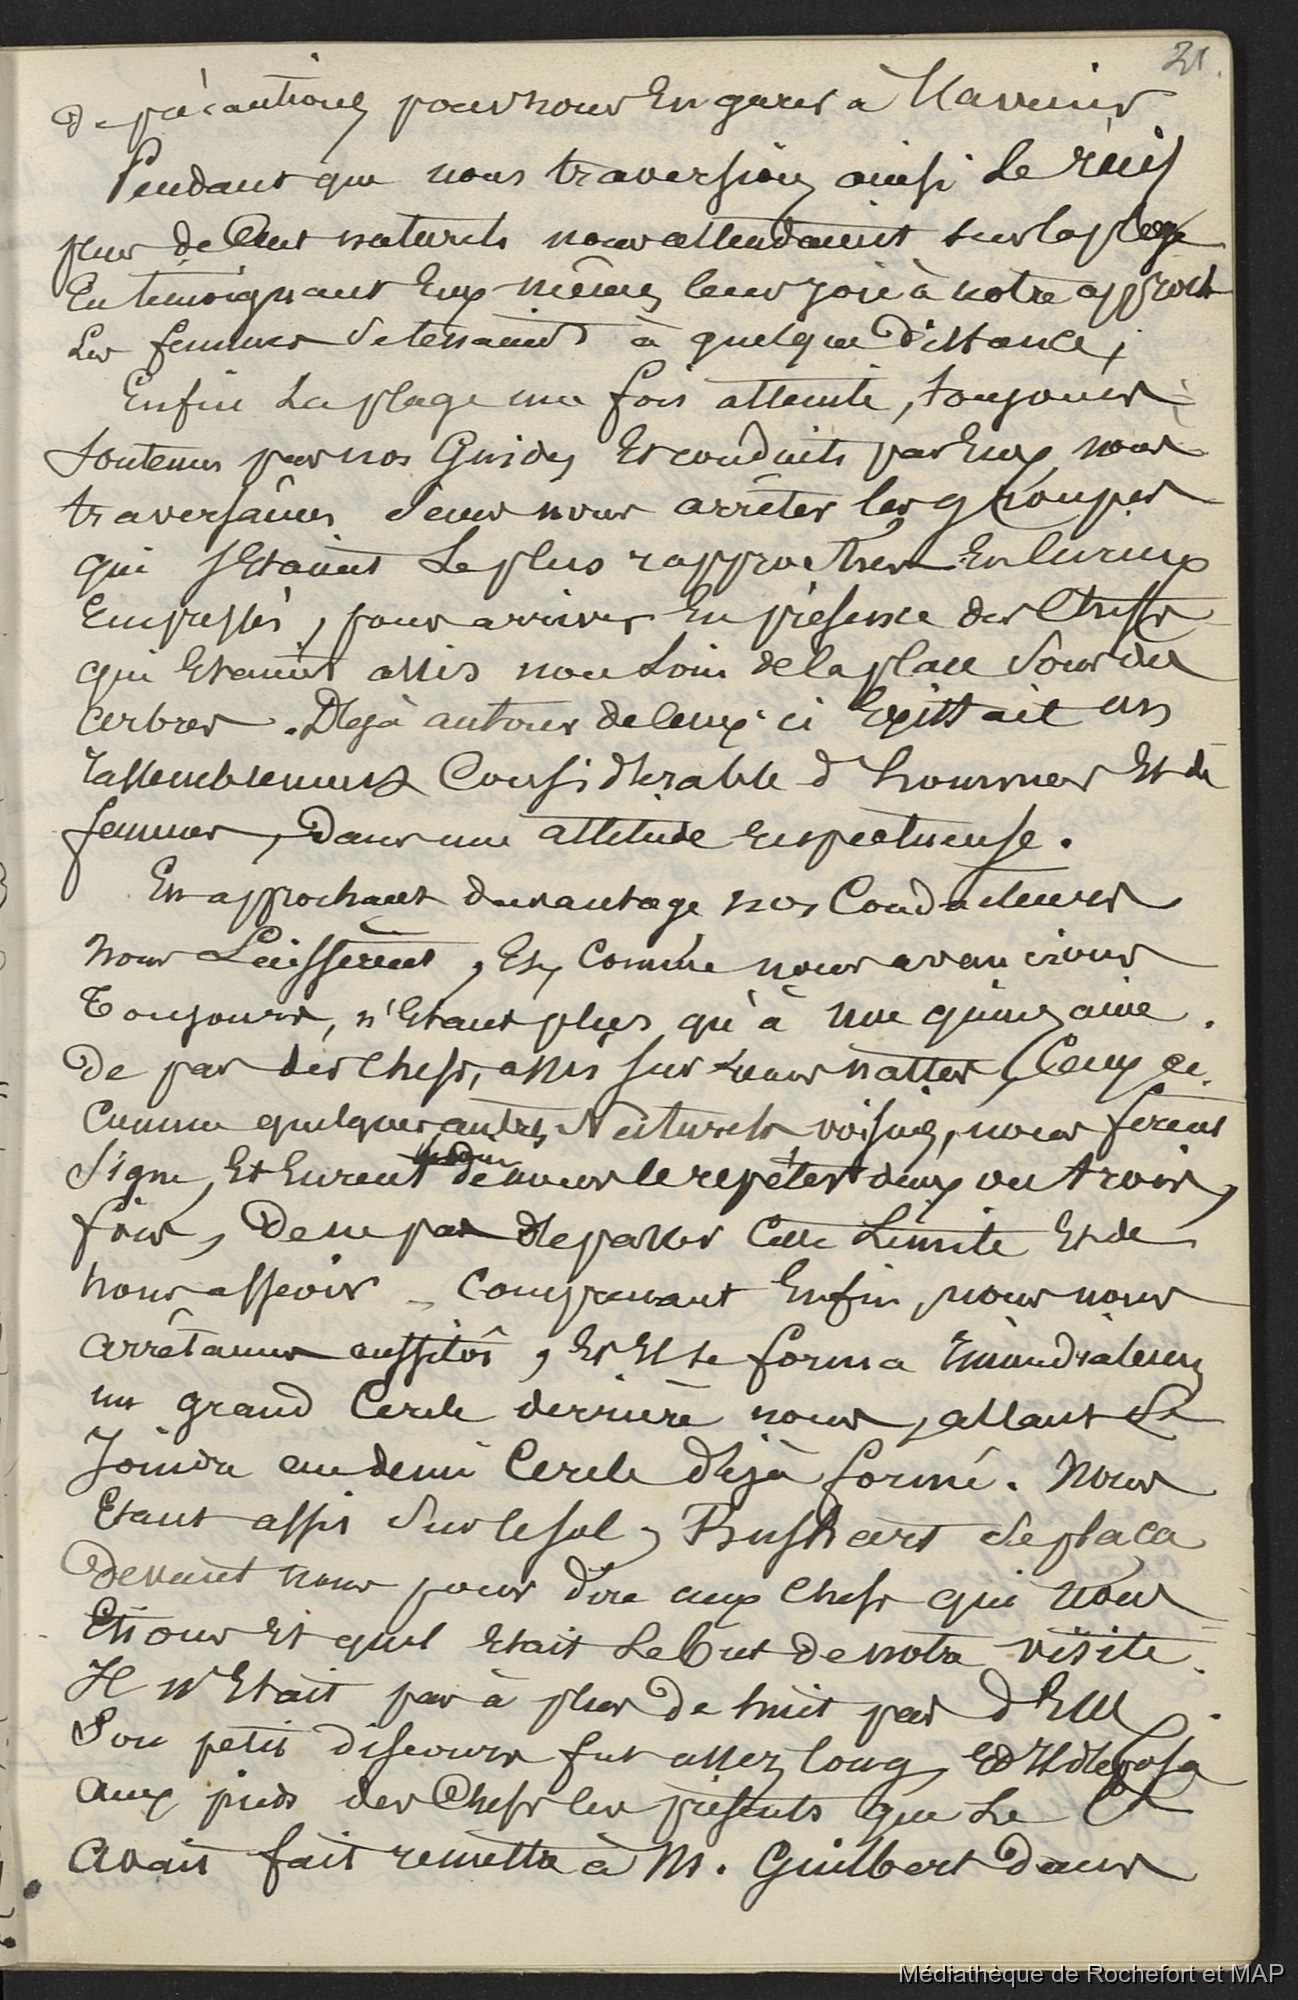 21.
De précautions pour nous en garer à l'avenir
Pendant que nous traversions ainsi le récif
plus de Cent naturels nous attendaient sur la plage
En témoignant Eux mêmes leur joie à notre approche
Les femmes se tenaient à quelque Distance ;
Enfin La plage une fois atteinte, toujours
soutenus par nos Guides Et conduits par Eux, nous
traversâmes sans nous arrêter les groupes
qui s'Etaient Le plus rapprochés En
Empressés, pour arriver En présence des Chefs
qui Etaient assis non Loin de la place sous des
arbres. Déjà autour de Ceux-ci Existait un
rassemblement Considérable d'hommes Et de
femmes, Dans une attitude respectueuse.
En approchant davantage nos Conducteurs
nous Laissèrent, Et, Comme nous avancions
Toujours, n'Etant plus qu'à une quinzaine
De pas des chefs, assis sur leurs nattes, Ceux ci
Comme quelques autres Naturels voisins, nous firent
signe, Et Eurent besoin de nous le repéter deux ou trois
fois, De ne pas dépasser Cette Limite Et de
nous asseoir _ Comprenant Enfin, nous nous
arrêtames aussitôt, Et Il se forma immédiatement
un grand Cercle derrière nous, allant se
Joindre au demi Cercle déjà formé. Nous
Etant assis sur le sol, Bushart se plaça
Devant nous pour dire aux Chefs qui nous
Etions Et quel Etait le But de notre visite.
Il n'Etait pas à plus de huit pas d'Eux
Son petit discours fut assez long, Et Il déposa
aux pieds des Chefs les présents que Le C
Avait fait remettre à M. Guilbert dans
Médiathèque de Rochefort et MAP